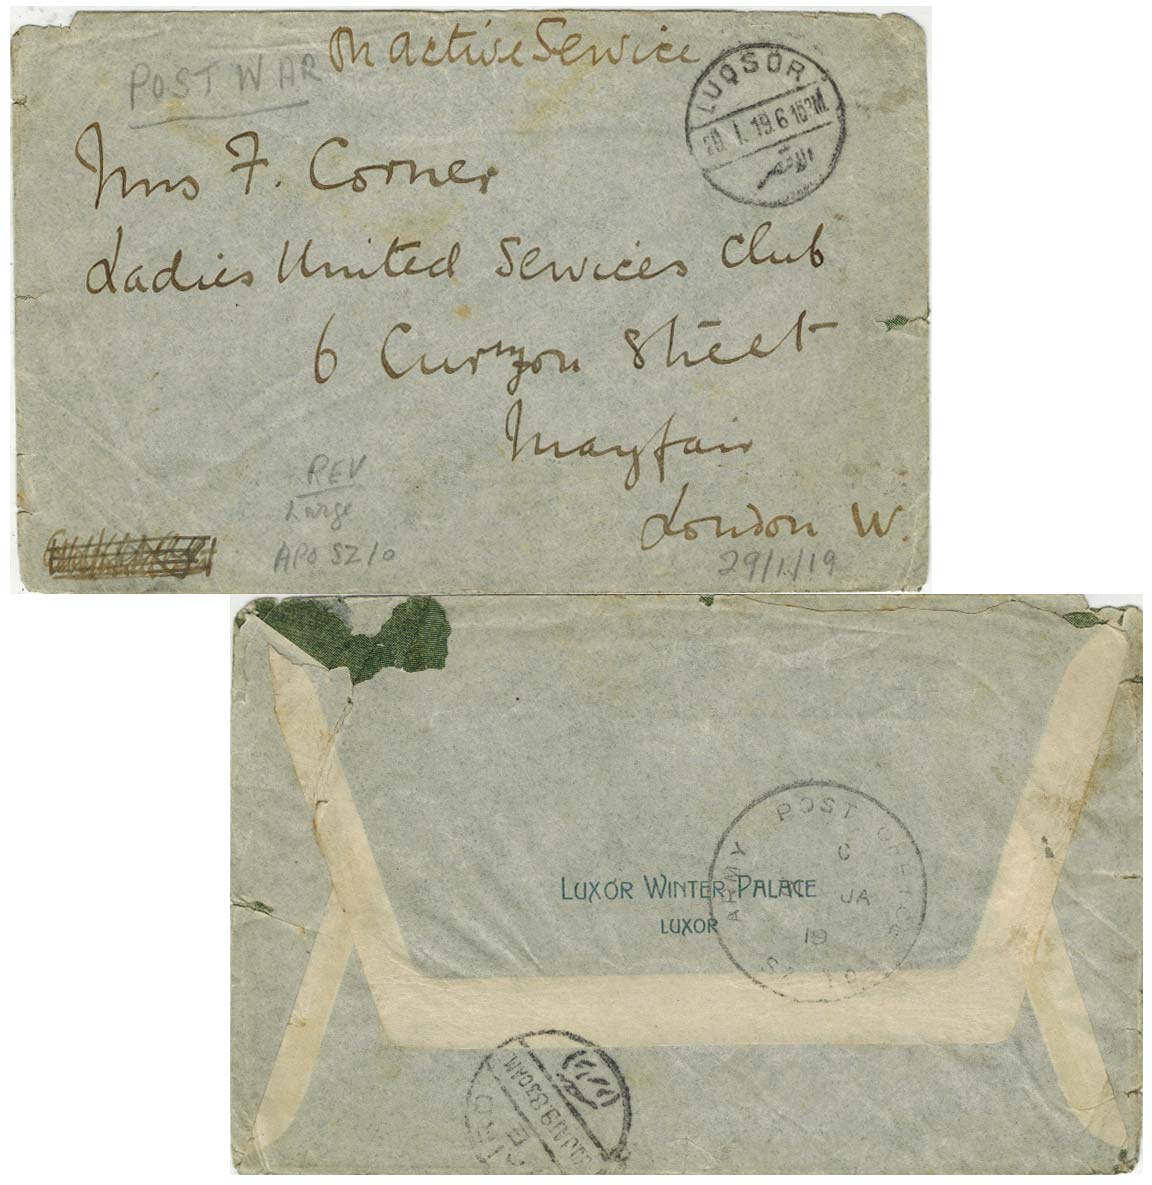 On Active Service
POST WAR
LUQSÔR
I. 19. 6
الاقصر
Mrs F. Corner
Ladies United Services Club
6 Curzon Street
Mayfair
London W.
REV
Large
APO SZ10
29/1/19
ARMY POST OFFICE
C
JA
19
SZ 10
LUXOR WINTER PALACE
LUXOR
JA 19. 8 30 AM
CAIRO